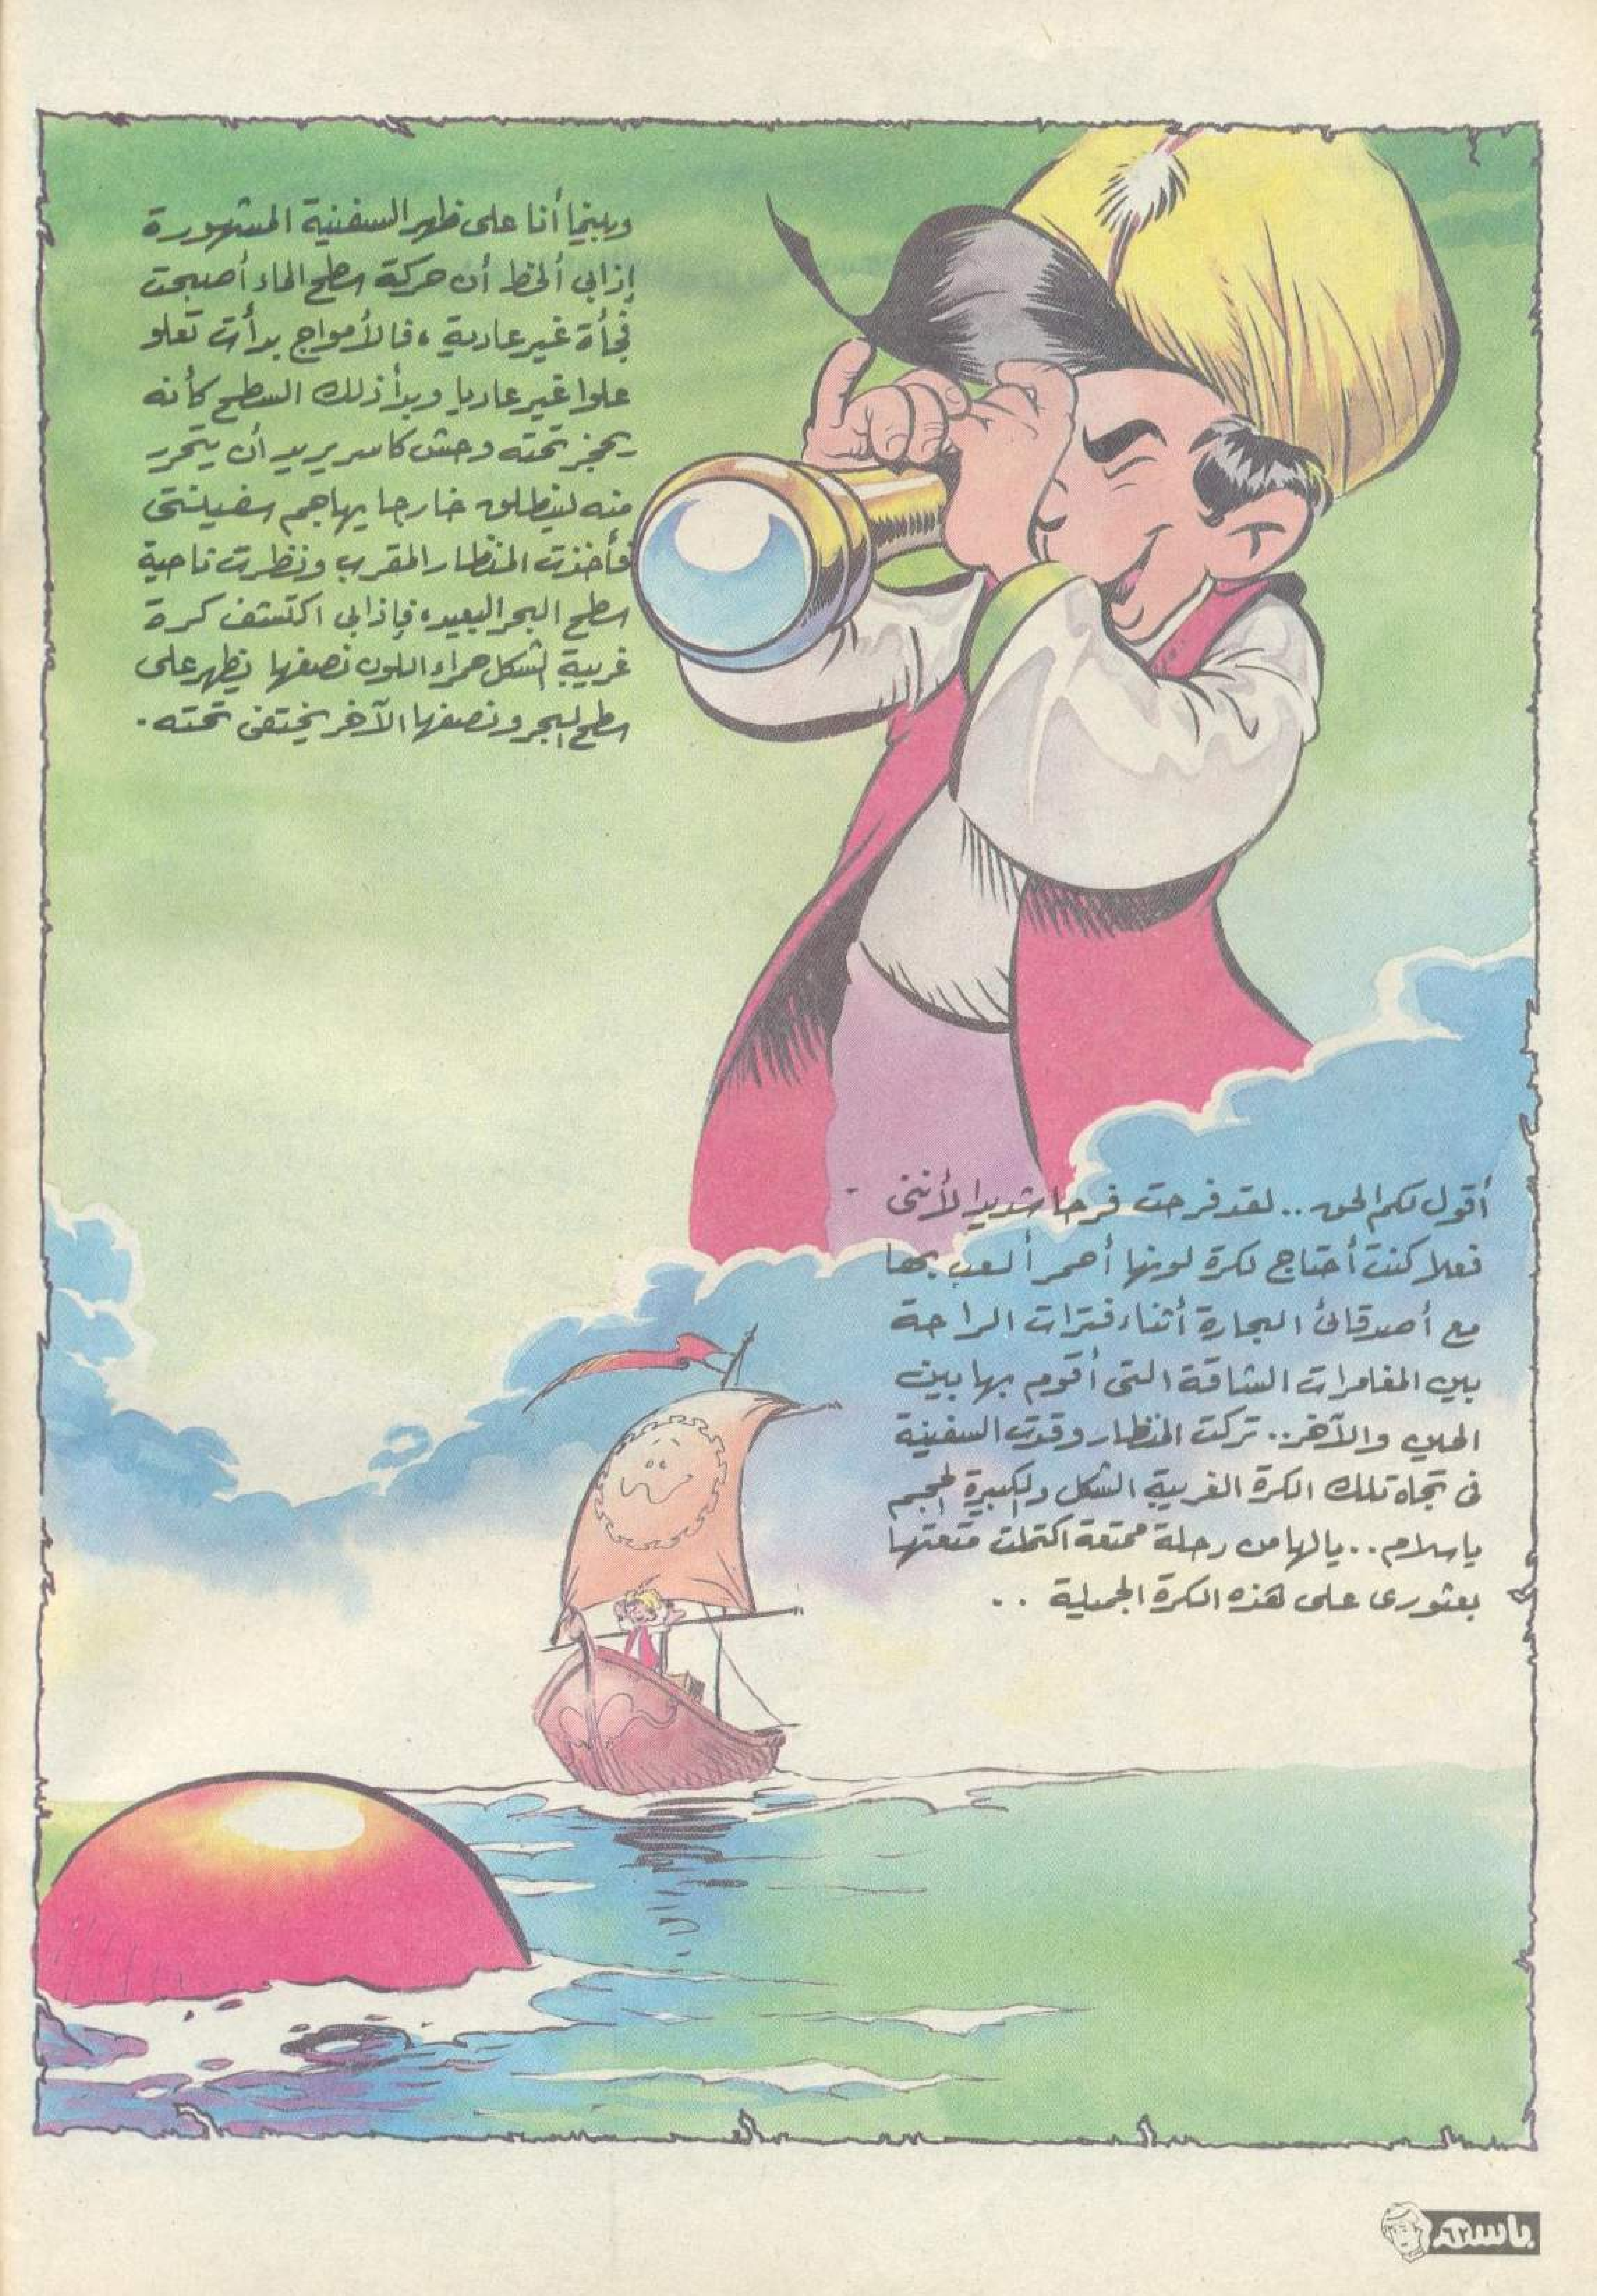 وبينما أنا على ظهر السفينة المشهورة
إذا بي ألحظ أن حركة سطح الماء أصبحت
فجأة غير عادية ، فالأمواج بدأت تعلو
علوا غير عاديا وبدأ ذلك السطح كأنه
يحجز تحته وحش كاسر يريد أن يتحرر
منه لينطلق خارجا يهاجم سفينتى
فأخذت المنظار المقرب ونظرت ناحية
سطح البحر البعيد، فإذا بي اكتشف كرة
غريبة الشكل حمراء اللون نصفها يظهر على
سطح البحر ونصفها الآخر يختفى تحته .
أقول لكم الحق .. لقد فرحت فرحا شديدا لأننى
فعلا كنت أحتاج لكرة لونها أحمر ألعب بها
مع أصدقائى البحارة أثناء فترات الراحة
بين المغامرات الشاقة التى أقوم بها بين
الحين والآخر.. تركت المنظار وقدت السفينة
فى تجاه تلك الكرة الغريبة الشكل والكبيرة الحجم
ياسلام .. يالها من رحلة ممتعة اكتملت متعتها
بعثورى على هذه الكرة الجميلة ..
باسم